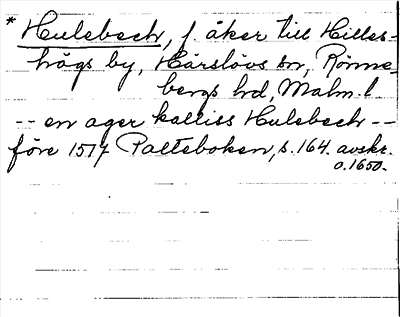 * Hulebech, f. åker till Hilles-
högs by, Härslövs sn, Rönne-
bergs hd, Malm. l.
-- en ager kalliss Hulebech --
före 1517 Palteboken, s. 164. avskr.
o. 1650.